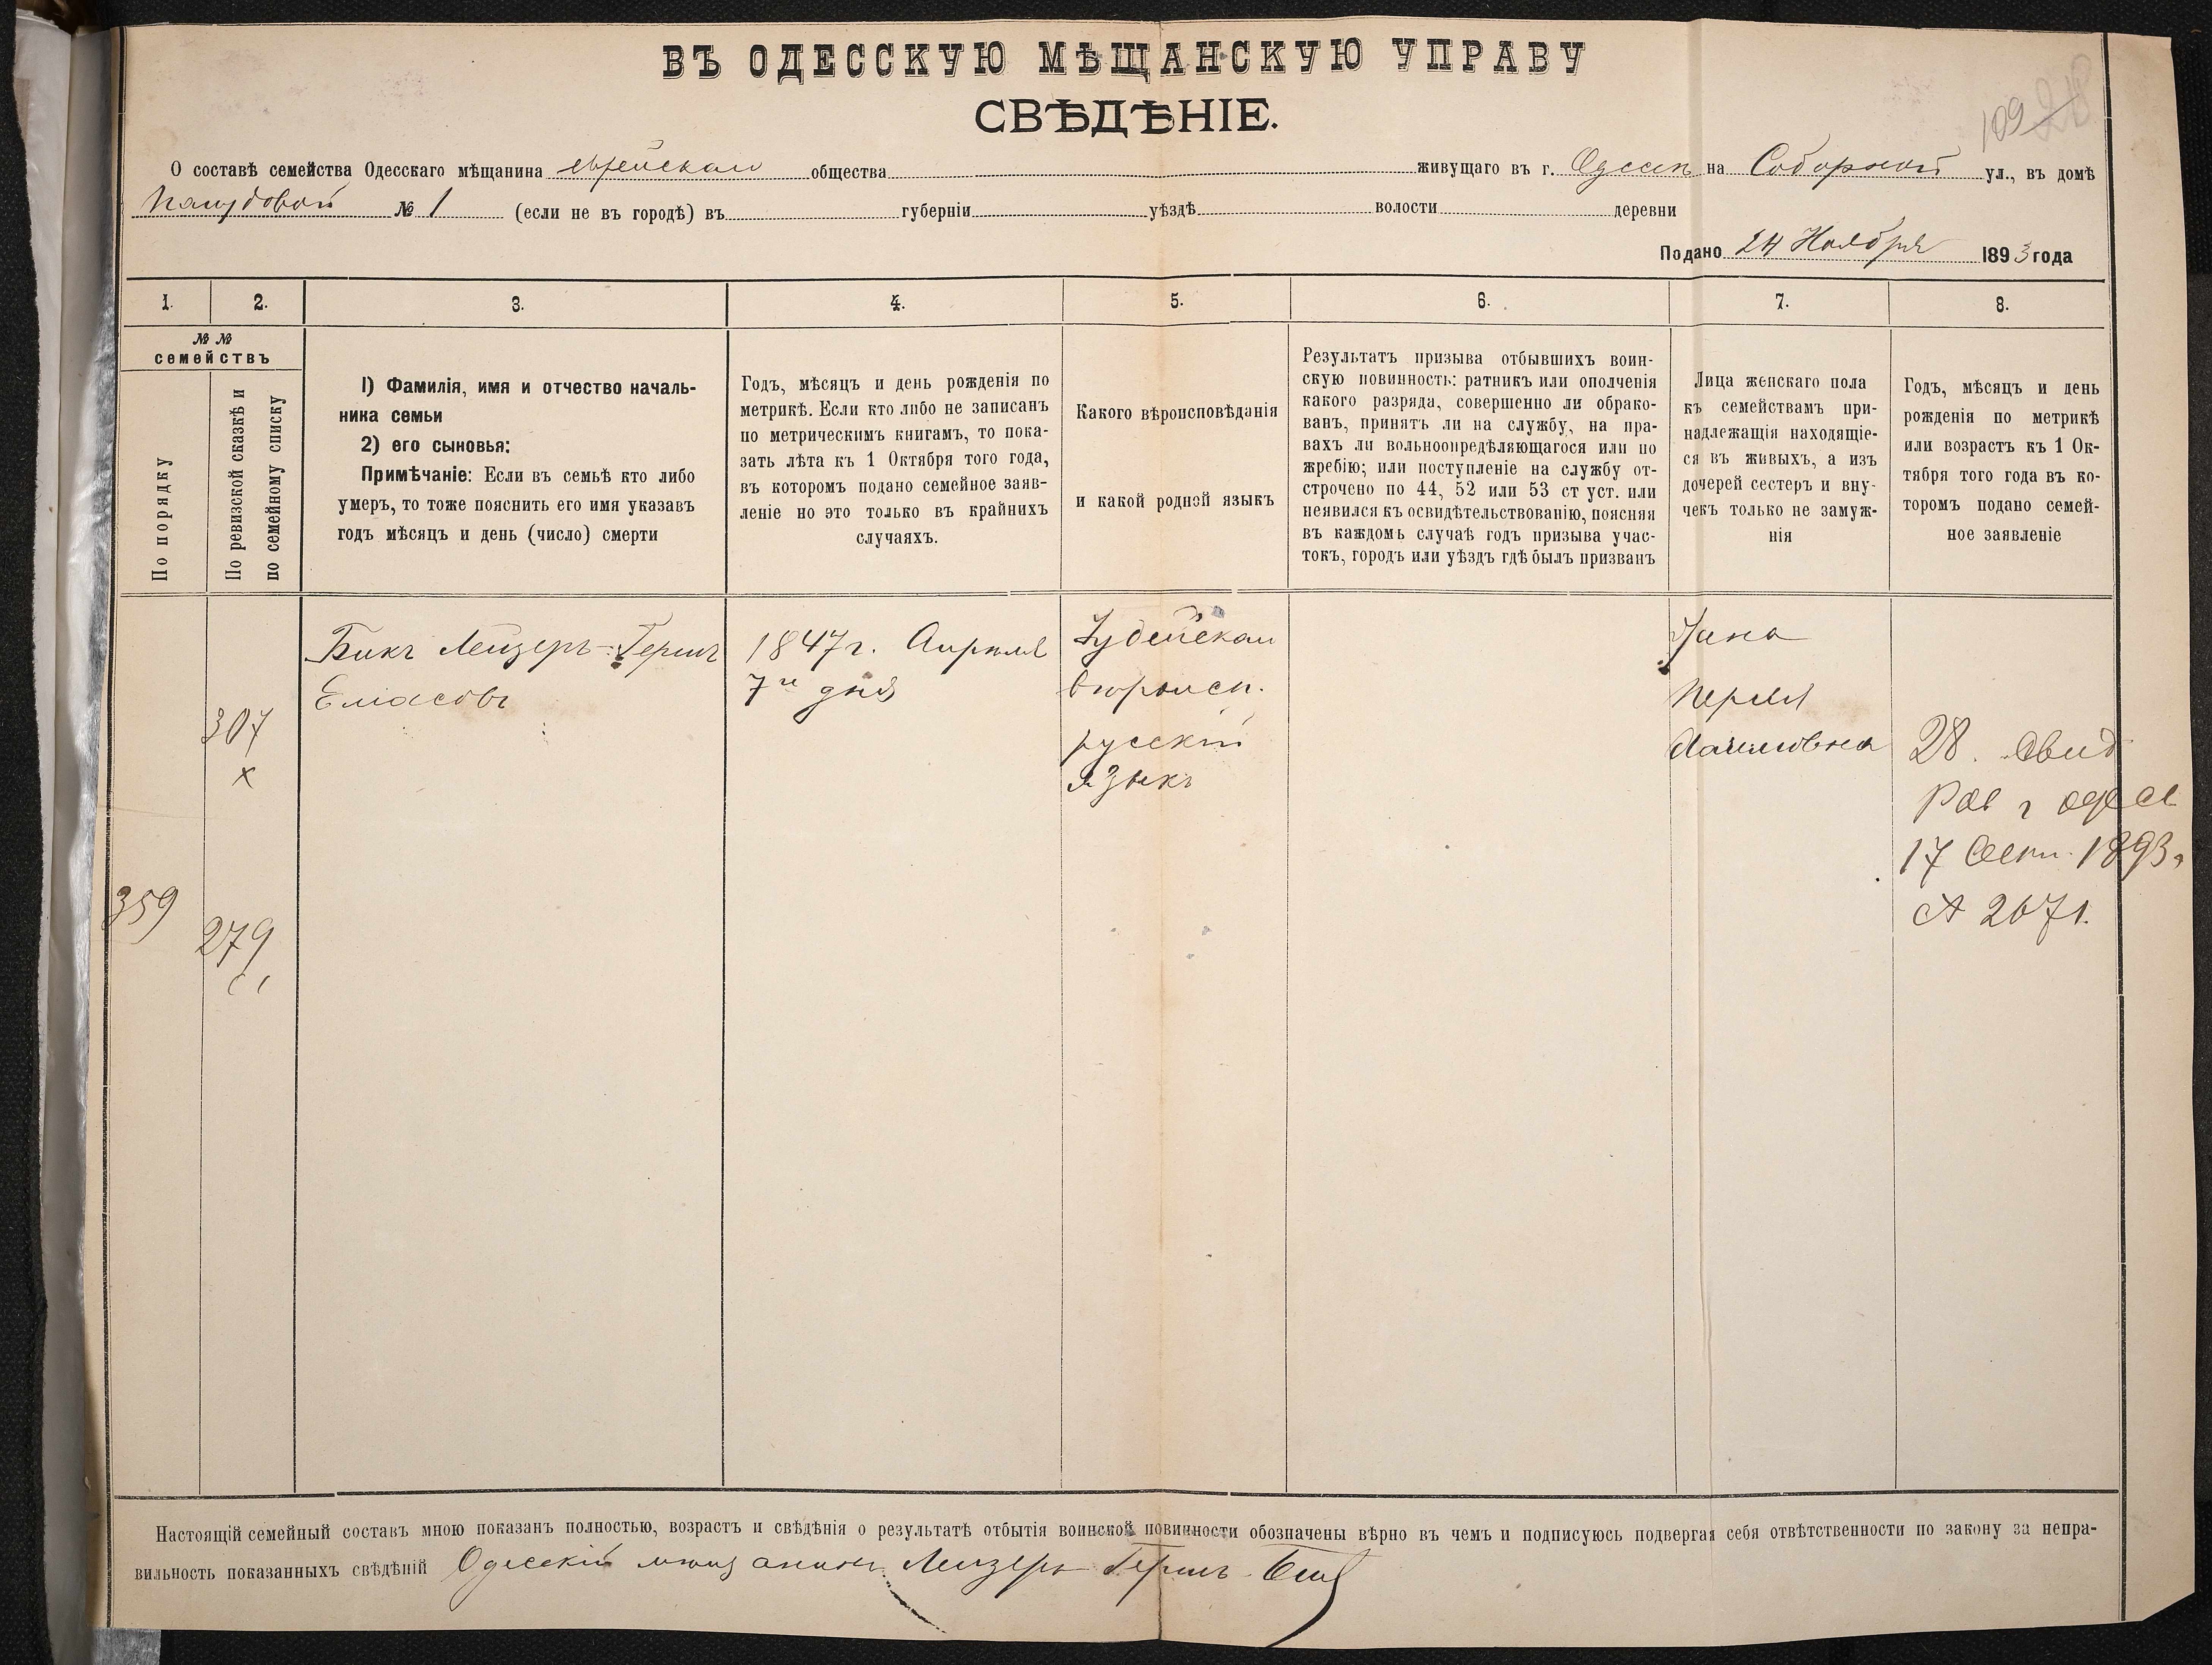 ВЪ ОДЕССКУЮ МѢЩАНСКУЮ УПРАВУ
СВѢДѢНІЕ.
109
О составѣ семейства Одесскаго мѣщанина еврейскаго общества живущаго въ г. Одессѣ на Соборной ул., въ домѣ
№ 1 (если не въ городѣ) въ губерніи уѣздѣ волости деревни
Подано 24 Ноября 1893 года
1. 2. 3. 4. 5. 6. 7. 8.
№ №
семействъ
По порядку
По ревизской сказкѣ и
по семейному списку
1) Фамилія, имя и отчество началь-
ника семьи
2) его сыновья:
Примѣчаніе: Если въ семьѣ кто либо
умеръ, то тоже пояснить его имя указавъ
годъ мѣсяцъ и день (число) смерти
Годъ, мѣсяцъ и день рожденія по
метрикѣ. Если кто либо не записанъ
по метрическимъ книгамъ, то пока-
зать лѣта къ 1 Октября того года,
въ которомъ подано семейное заяв-
леніе но это только въ крайнихъ
случаяхъ.
Какого вѣроисповѣданія
и какой родной языкъ
Результатъ призыва отбывшихъ воин-
скую повинность: ратникъ или ополченія
какого разряда, совершенно ли обрако-
ванъ, принятъ ли на службу, на пра-
вахъ ли вольноопредѣляющагося или по
жребію; или поступленіе на службу от-
строчено по 44, 52 или 53 ст уст. или
неявился къ освидѣтельствованію, поясняя
въ каждомъ случаѣ годъ призыва учас-
токъ, городъ или уѣздъ гдѣ былъ призванъ
Лица женскаго пола
къ семействамъ при-
надлежащія находящіе-
ся въ живыхъ, а изъ
дочерей сестеръ и вну-
чекъ только не замуж-
нія
Годъ, мѣсяцъ и день
рожденія по метрикѣ
или возрастъ къ 1 Ок-
тября того года въ ко-
торомъ подано семей-
ное заявленіе
359
307
х
279
Бикъ Лейзеръ-Гершъ
1847 г. Апреля
7го дня
Іудейскаго
вѣроисп.
русскій
языкъ
Жена
Перля
28. Свид
Рав г Одес
17 Сент. 1893 г
№ 2671.
Настоящій семейный составъ мною показанъ полностью, возрастъ и свѣдѣнія о результатѣ отбытія воинской повинности обозначены вѣрно въ чемъ и подписуюсь подвергая себя отвѣтственности по закону за непра-
вильность показанныхъ свѣдѣній Одесскій мѣщанинъ Лейзеръ Гершъ Бикъ